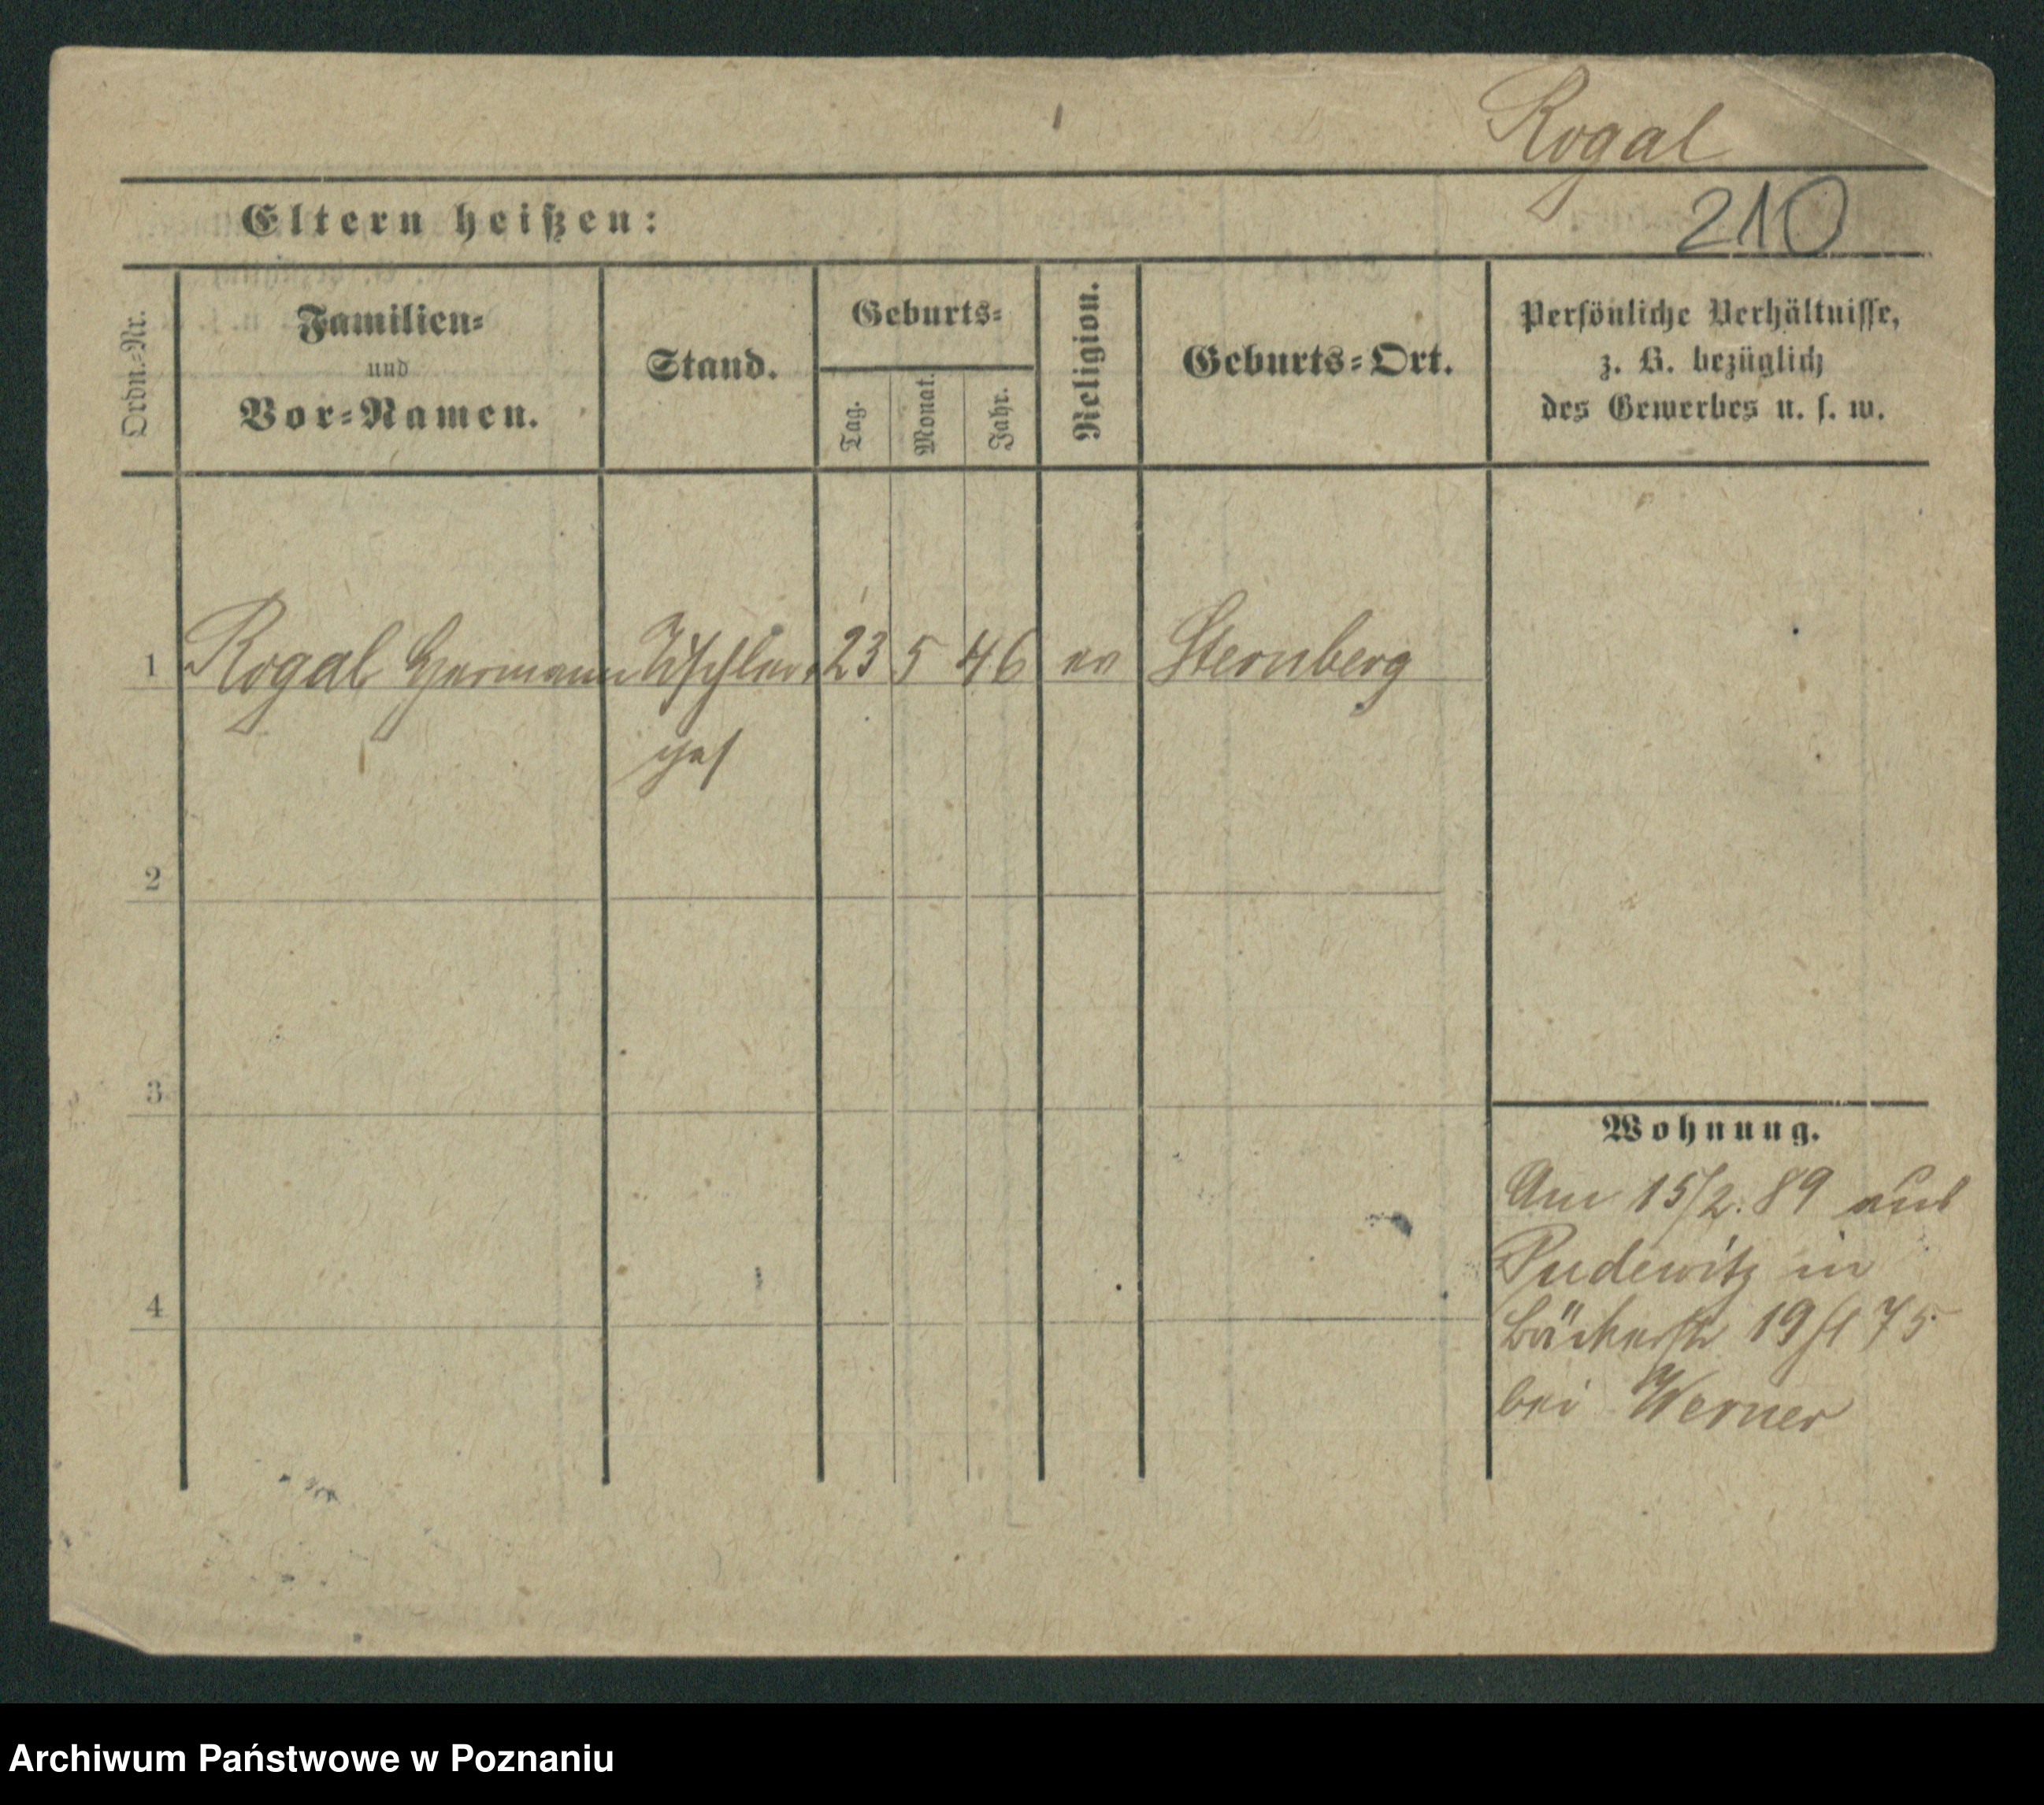 Rogal
Eltern heißen:
210
Ordn.=Nr.
Familien=
und
Vor=Namen.
Stand.
Geburts=
Tag.
Monat.
Jahr.
Religion.
Geburts=Ort.
Persönliche Verhältnisse,
z. B. bezüglich
des Gewerbes u. s. w.
1 Rogal Hermann Tischler 23 5 46 ev Sternberg
ges
2
3
4
Wohnung.
Am 15/2. 89 aus
Pudewitz in
Bäckerstr 19 75
bei Werner
Archiwum Państwowe w Poznaniu